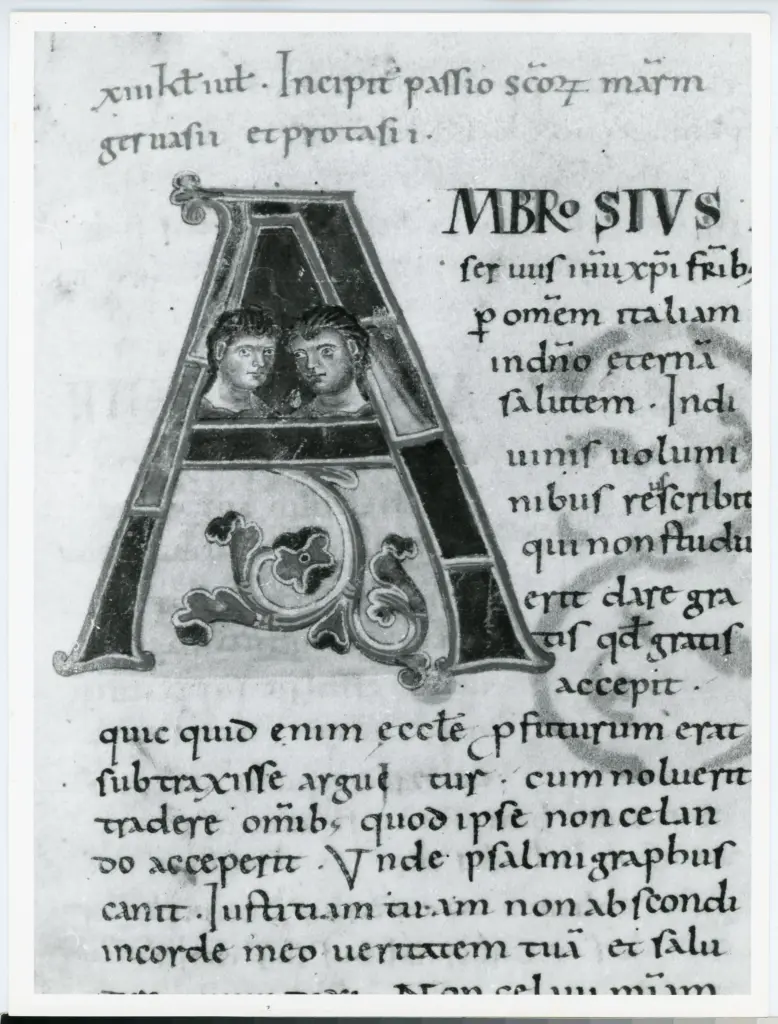 xiiii kł iul̄ . Incipit passio scōꝝ mar̄m
geruasii et protasii .
AMBROSIVS
seruus ihū xp̄i fr̄ib;
ꝑ om̄em italiam
in dn̄o eternā
salutem . In di
uinis uolumi
nibus rescribit
qui non studu
erit dare gra
tis qđ gratis
accepit .
quic quid enim eccłe ꝓfuturum erat
subtraxisse arguetur . cum noluerit
tradere om̄ib; quod ipse non celan
do acceperit . Vnde psalmigraphus
canit . Iustitiam tuam non abscondi
in corde meo ueritatem tuā et salu
Non celaui mīam